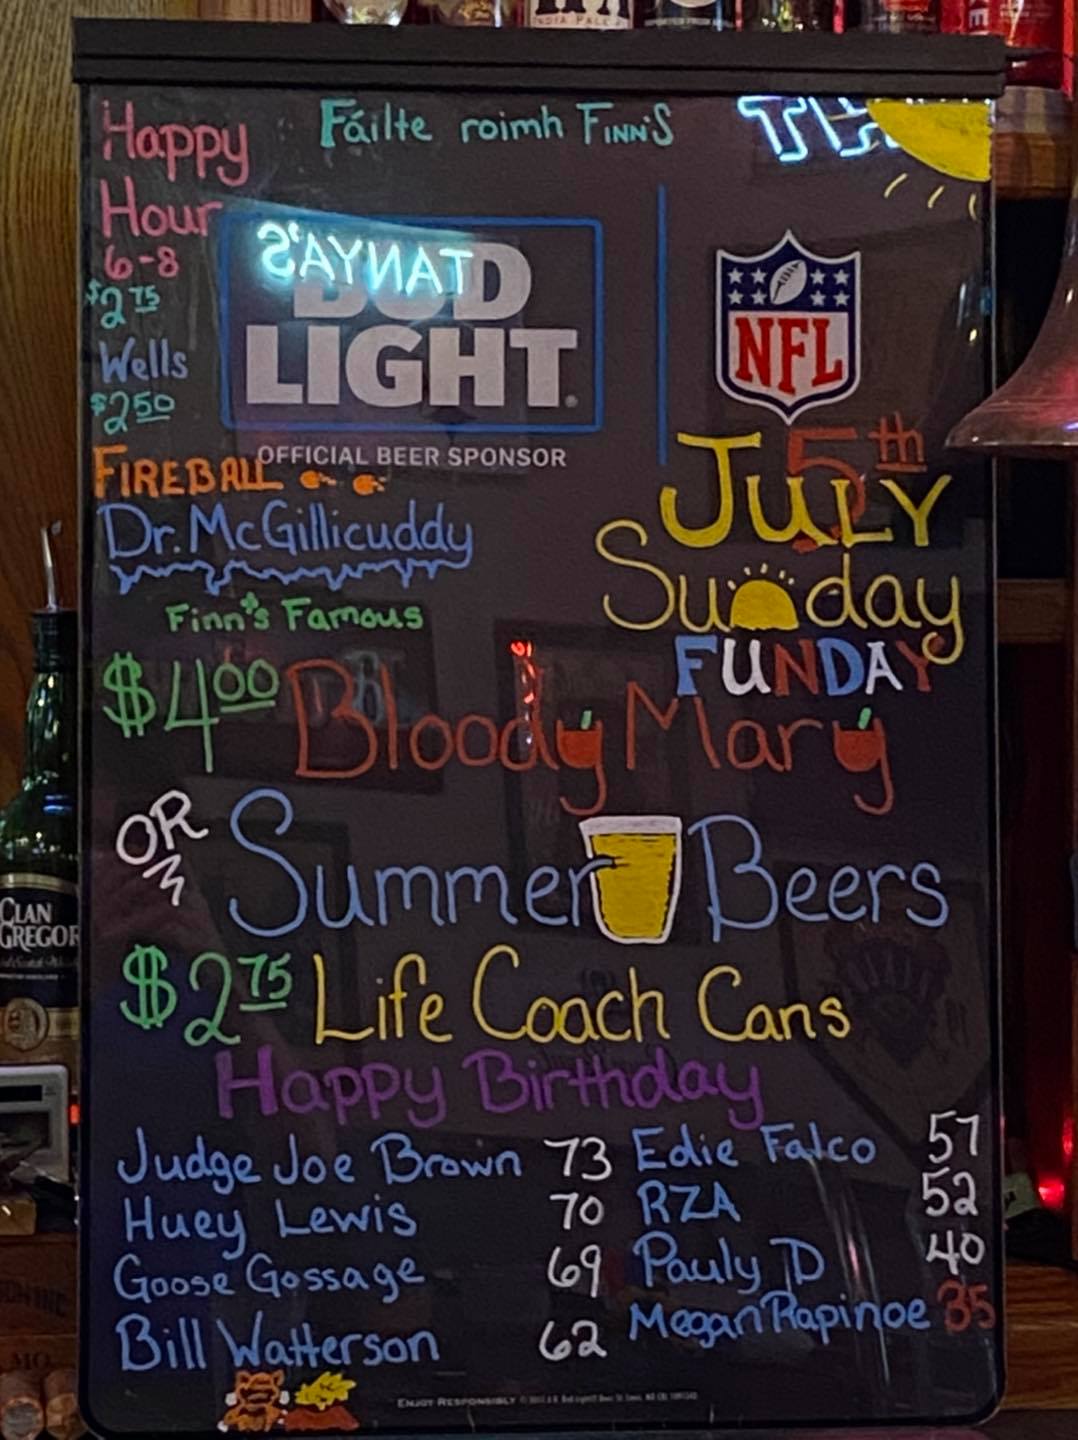 INDIA PALE A
Fáilte roimh FINN'S
TH
Happy
Hour
6-8
$2 75
Wells
$2 50
FIREBALL
Dr. McGillicuddy
TANYA'S
BUD
LIGHT
OFFICIAL BEER SPONSOR
NFL
JULY 5th
Sunday
FUNDAY
Finn's Famous
$4 00 Bloody Mary
OR Summer Beers
$2 75 Life Coach Cans
Happy Birthday
Judge Joe Brown 73
Huey Lewis 70
Goose Gossage 69
Bill Watterson 62
Edie Falco 57
RZA 52
Pauly D 40
Megan Rapinoe 35
ENJOY RESPONSIBLY
CLAN
GREGOR
MO.